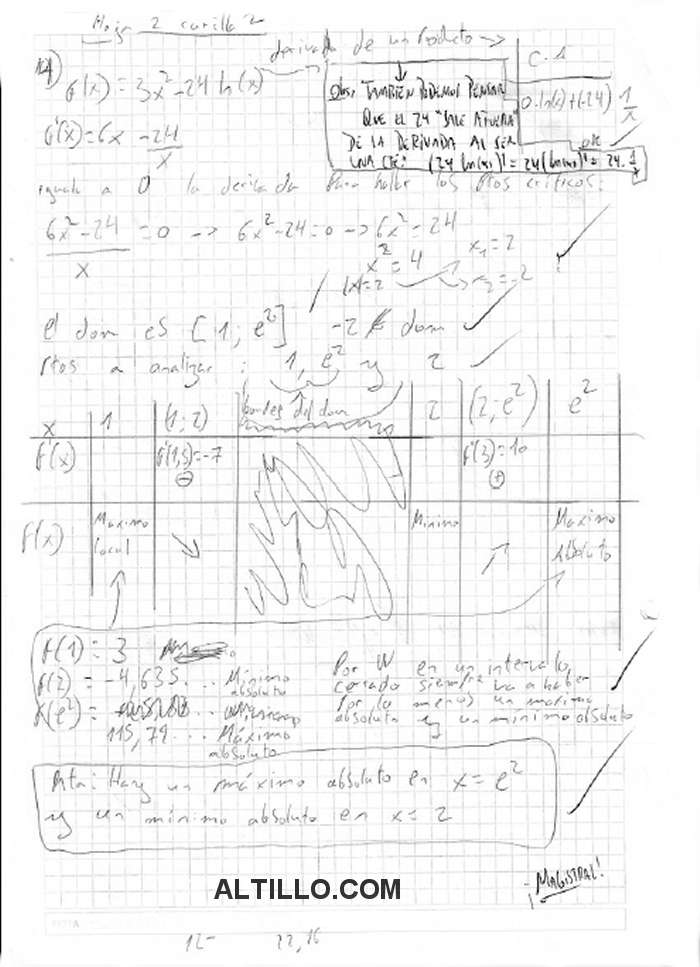 Hoja 2 carilla 2
derivada de un Producto → C.1
4) f(x) = 3x² - 24 ln(x)
Obs: TAMBIÉN PODEMOS PENSAR
QUE EL 24 "SALE AFUERA"
DE LA DERIVADA AL SER
UNA CTE: (24 ln(x))' = 24 (ln(x))' = 24 . 1/x
0.ln(x)+(-24) 1/x
f'(x) = 6x - 24/x
igualo a 0 la derivada para hallar los Ptos críticos:
(6x² - 24)/x = 0 → 6x² - 24 = 0 → 6x² = 24
x² = 4 x₁ = 2
|x| = 2 x₂ = -2
el dom es [1; e²] -2 ∉ dom
Ptos a analizar: 1, e² y 2
bordes del dom
x 1 (1; 2) 2 (2; e²) e²
f'(x) f'(1,5) = -7 ⊖ f'(3) = 10 ⊕
f(x) Maximo local ↘ Minimo ↗ Maximo absoluto
f(1) = 3
f(2) = -4,635... Mínimo absoluto
f(e²) =
115,79... Máximo absoluto
Por W en un intervalo
cerrado siempre va a haber
por lo menos un maximo
absoluto y un minimo absoluto
Rta: Hay un máximo absoluto en x = e²
y un mínimo absoluto en x = 2
¡MAGISTRAL!
ALTILLO.COM
12-